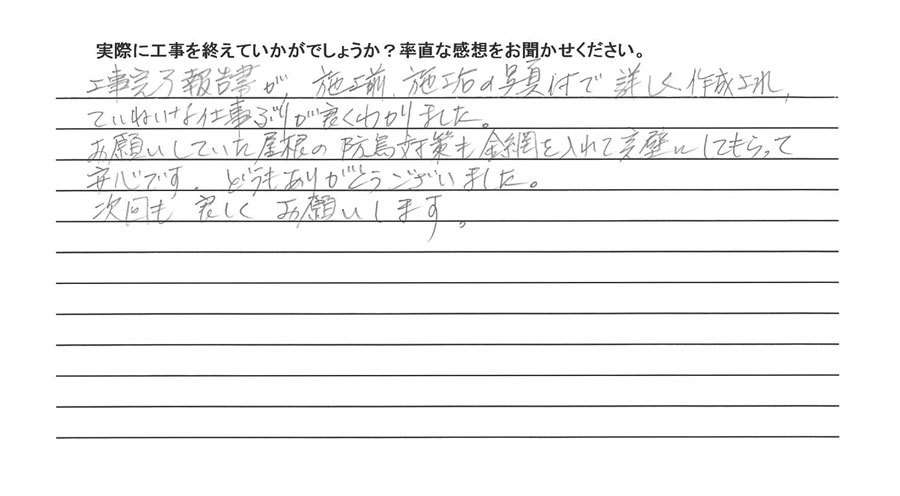 実際に工事を終えていかがでしょうか？率直な感想をお聞かせください。
工事完了報告書が、施工前、施工后の写真付で詳しく作成され、
ていねいな仕事ぶりが良くわかりました。
お願いしていた屋根の防鳥対策も金網を入れて完璧にしてもらって
安心です。どうもありがとうございました。
次回も宜しくお願いします。